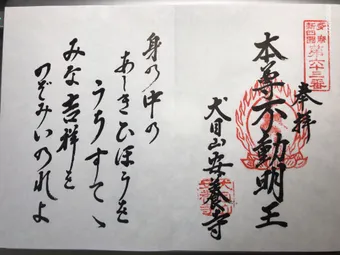 奉拝
多摩
新四国
第六十三番
本尊不動明王
犬目山安養寺
身の中の
あしきひほうを
うちすてゝ
みな吉祥を
のぞみいのれよ